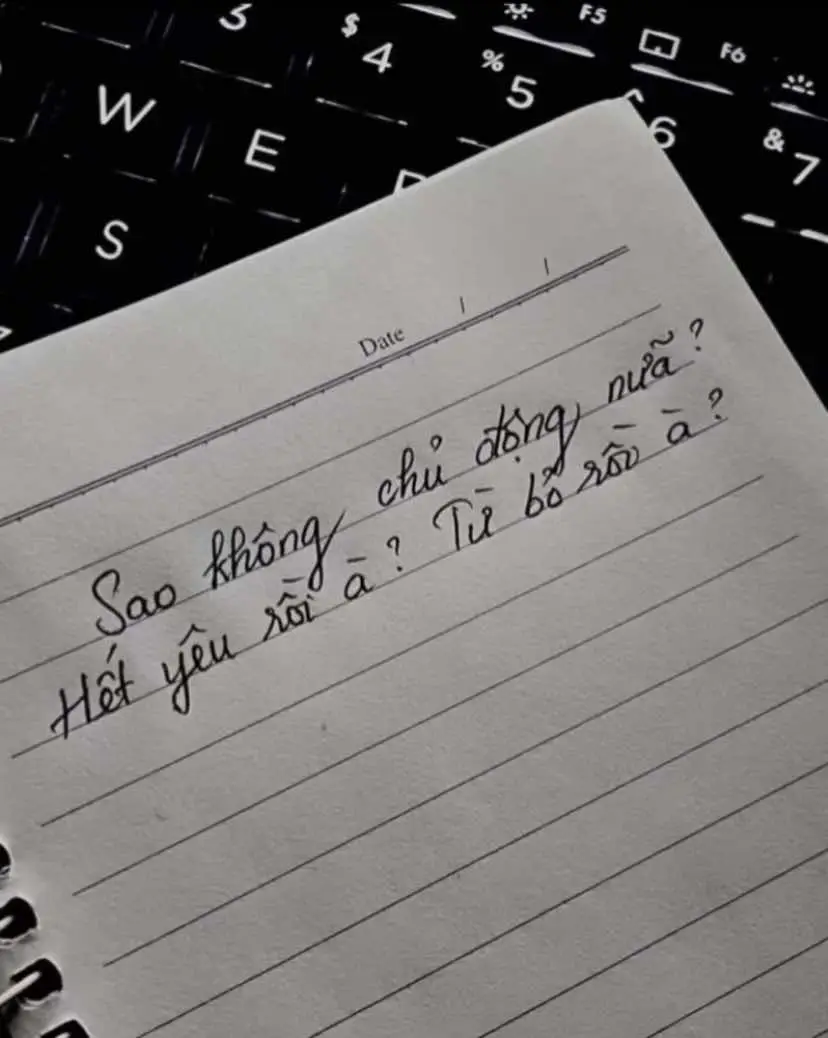 3 $ 4 % 5 F5 F6
W E ^ 6 & 7
S
Date / /
Sao không chủ động nữa?
Hết yêu rồi à? Từ bỏ rồi à?